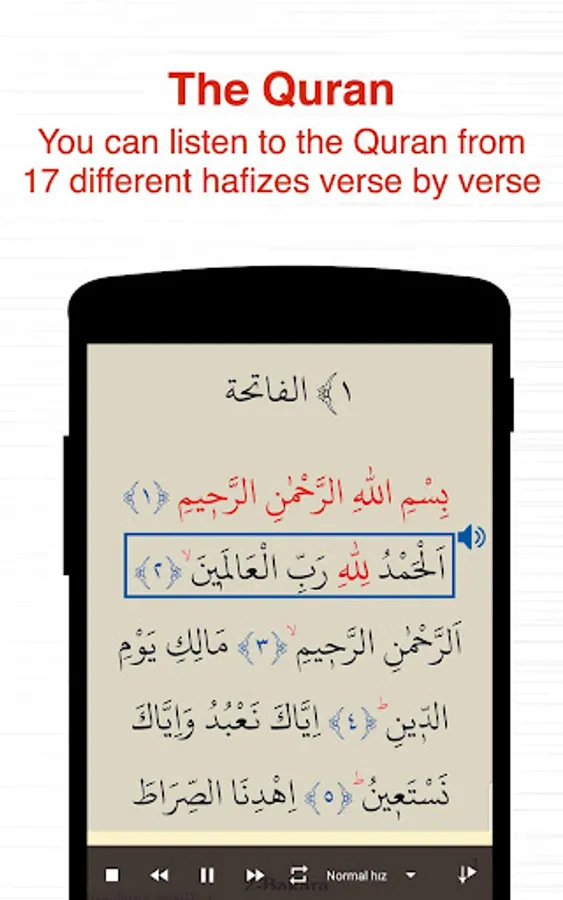 The Quran
You can listen to the Quran from
17 different hafizes verse by verse
١﴾ الفاتحة
بِسْمِ اللّٰهِ الرَّحْمٰنِ الرَّح۪يمِ ﴿١﴾
اَلْحَمْدُ لِلّٰهِ رَبِّ الْعَالَم۪ينَۙ ﴿٢﴾
اَلرَّحْمٰنِ الرَّح۪يمِۙ ﴿٣﴾ مَالِكِ يَوْمِ
الدّ۪ينِۜ ﴿٤﴾ اِيَّاكَ نَعْبُدُ وَاِيَّاكَ
نَسْتَع۪ينُۜ ﴿٥﴾ اِهْدِنَا الصِّرَاطَ
Normal hız
2-Bakara